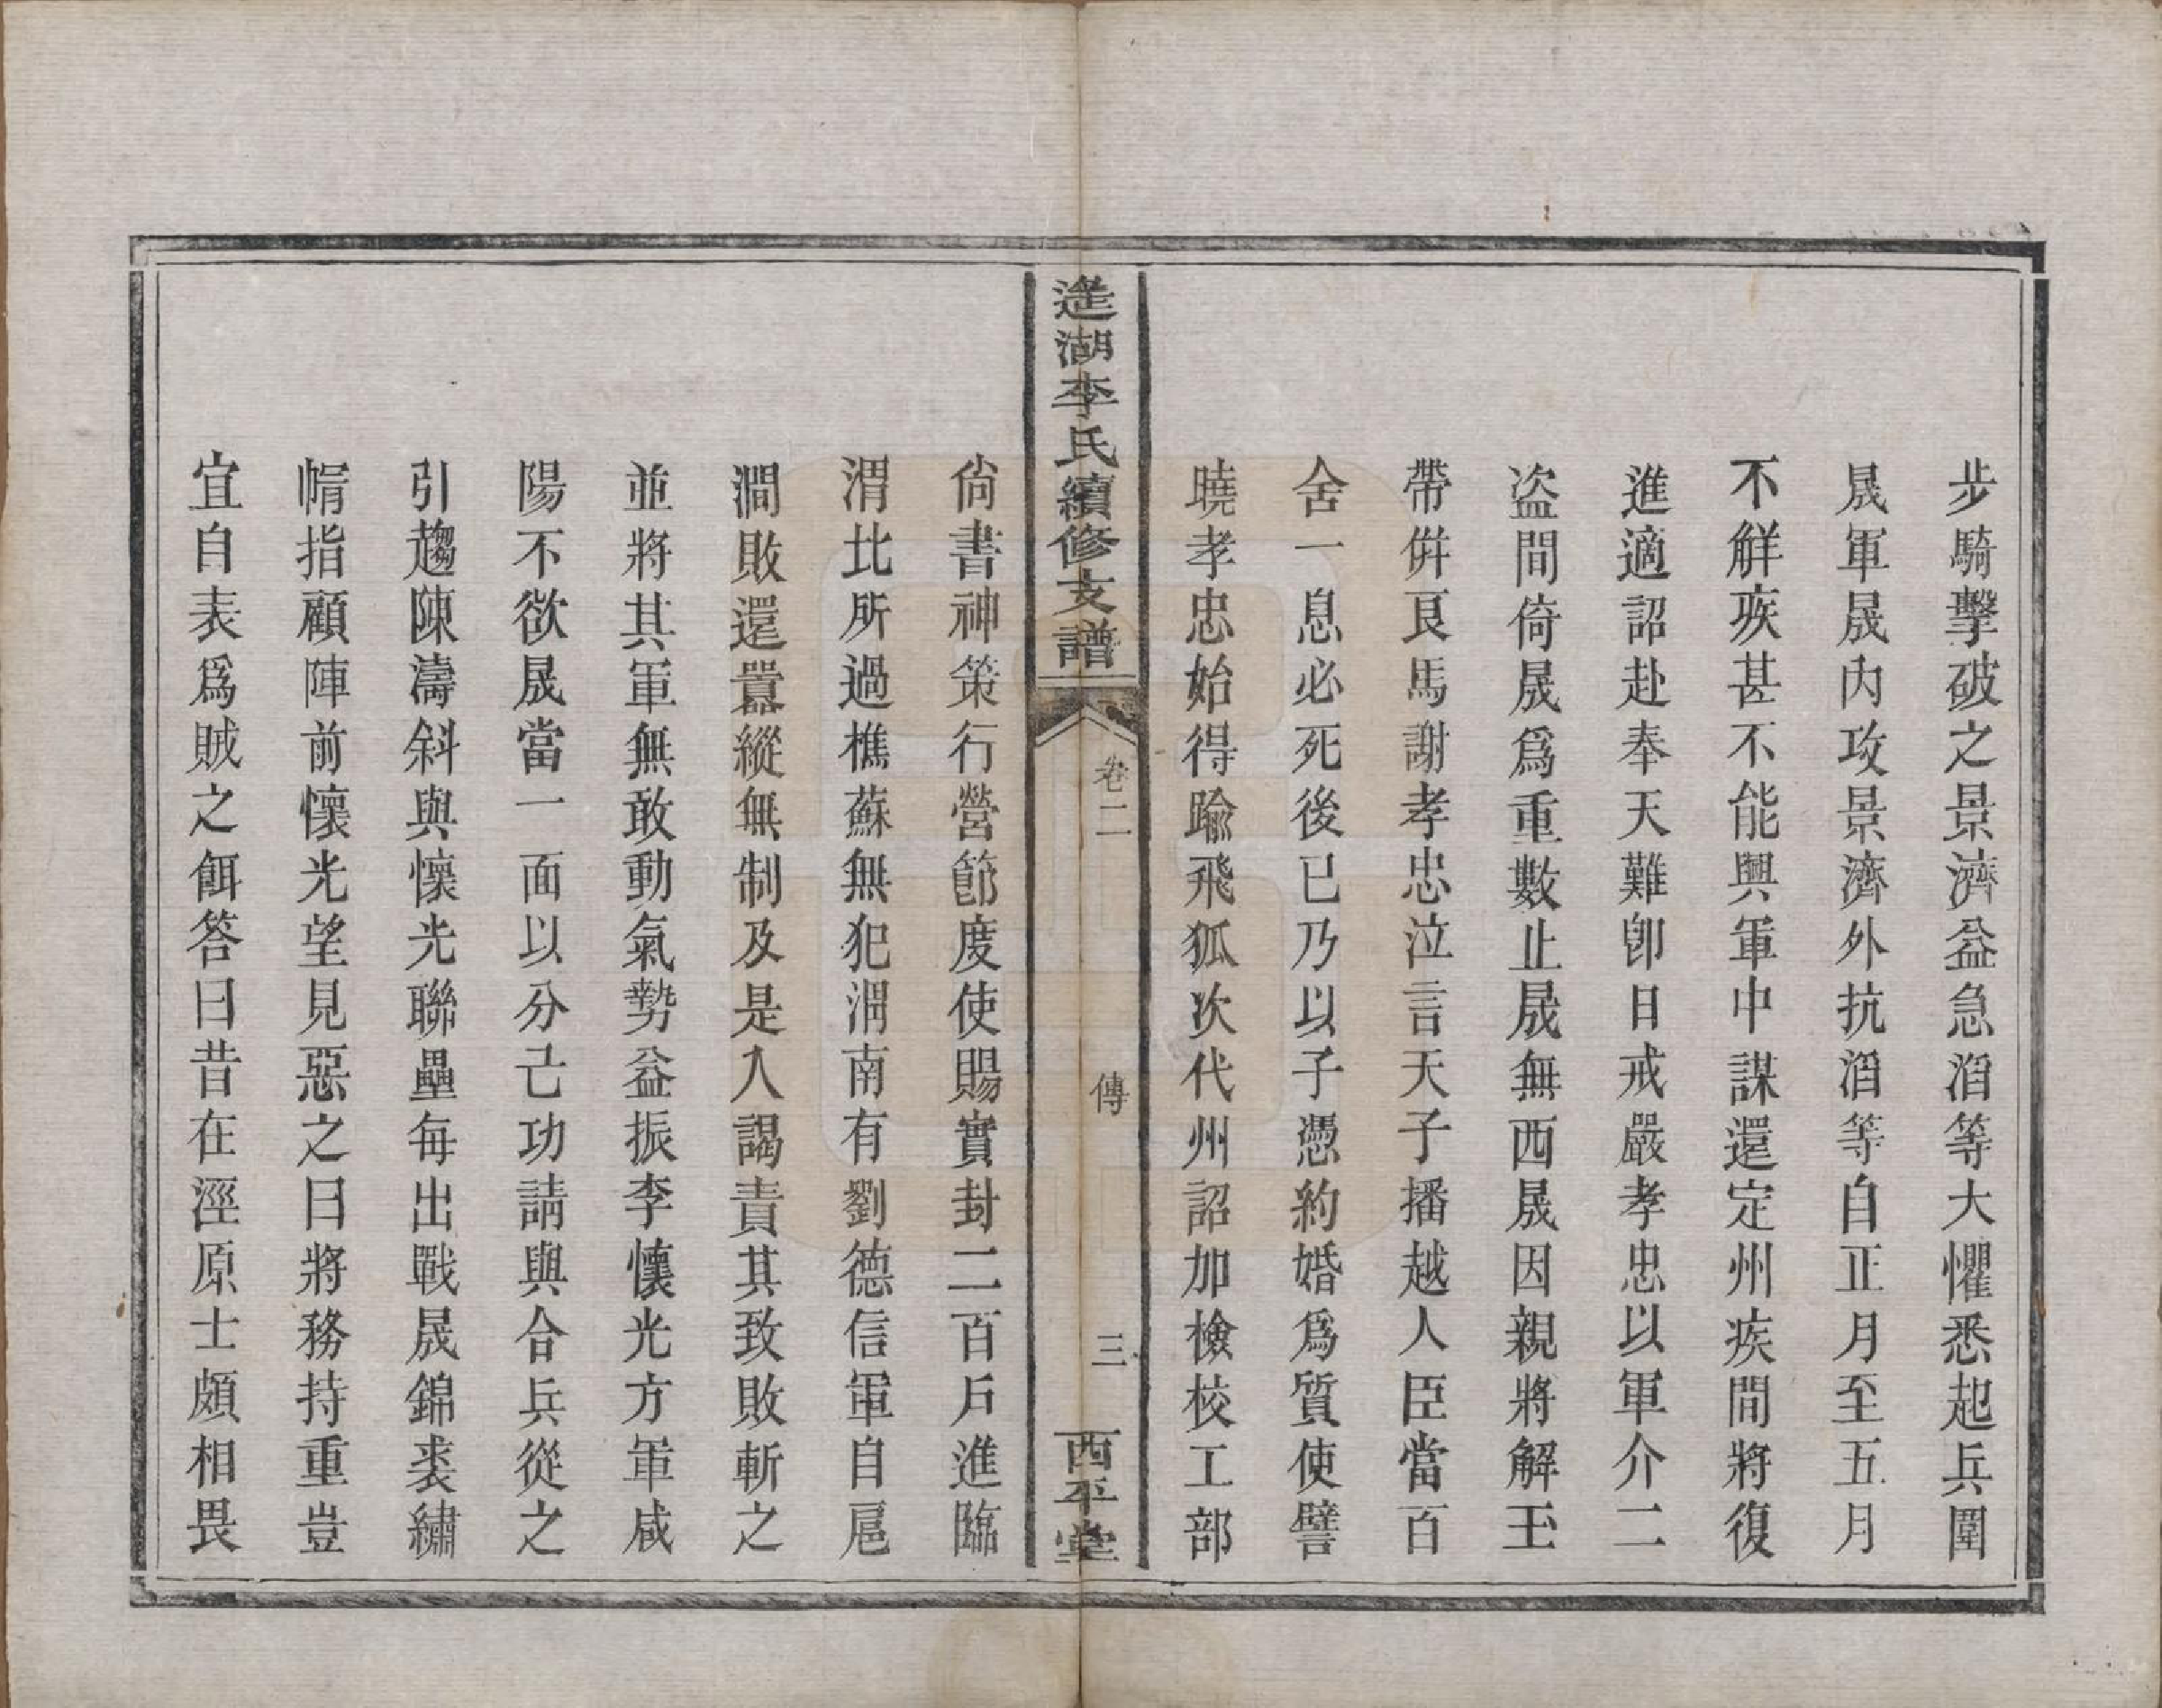 步騎擊破之景濟益急滔等大懼悉起兵圍
晟軍晟內攻景濟外抗滔等自正月至五月
不解疾甚不能興軍中謀還定州疾間將復
進適詔赴奉天難卽日戒嚴孝忠以軍介二
盜間倚晟爲重數止晟無西晟因親將解玉
帶倂良馬謝孝忠泣言天子播越人臣當百
舍一息必死後已乃以子憑約婚爲質使譬
曉孝忠始得踰飛狐次代州詔加檢校工部
逆湖李氏續修支譜
卷二
傳
三
西平堂
尙書神策行營節度使賜實封二百戶進臨
渭北所過樵蘇無犯渭南有劉德信軍自扈
澗敗還囂縱無制及是入謁責其致敗斬之
並將其軍無敢動氣勢益振李懷光方軍咸
陽不欲晟當一面以分己功請與合兵從之
引趨陳濤斜與懷光聯壘每出戰晟錦裘繡
帽指顧陣前懷光望見惡之曰將務持重豈
宜自表爲賊之餌答曰昔在涇原士頗相畏